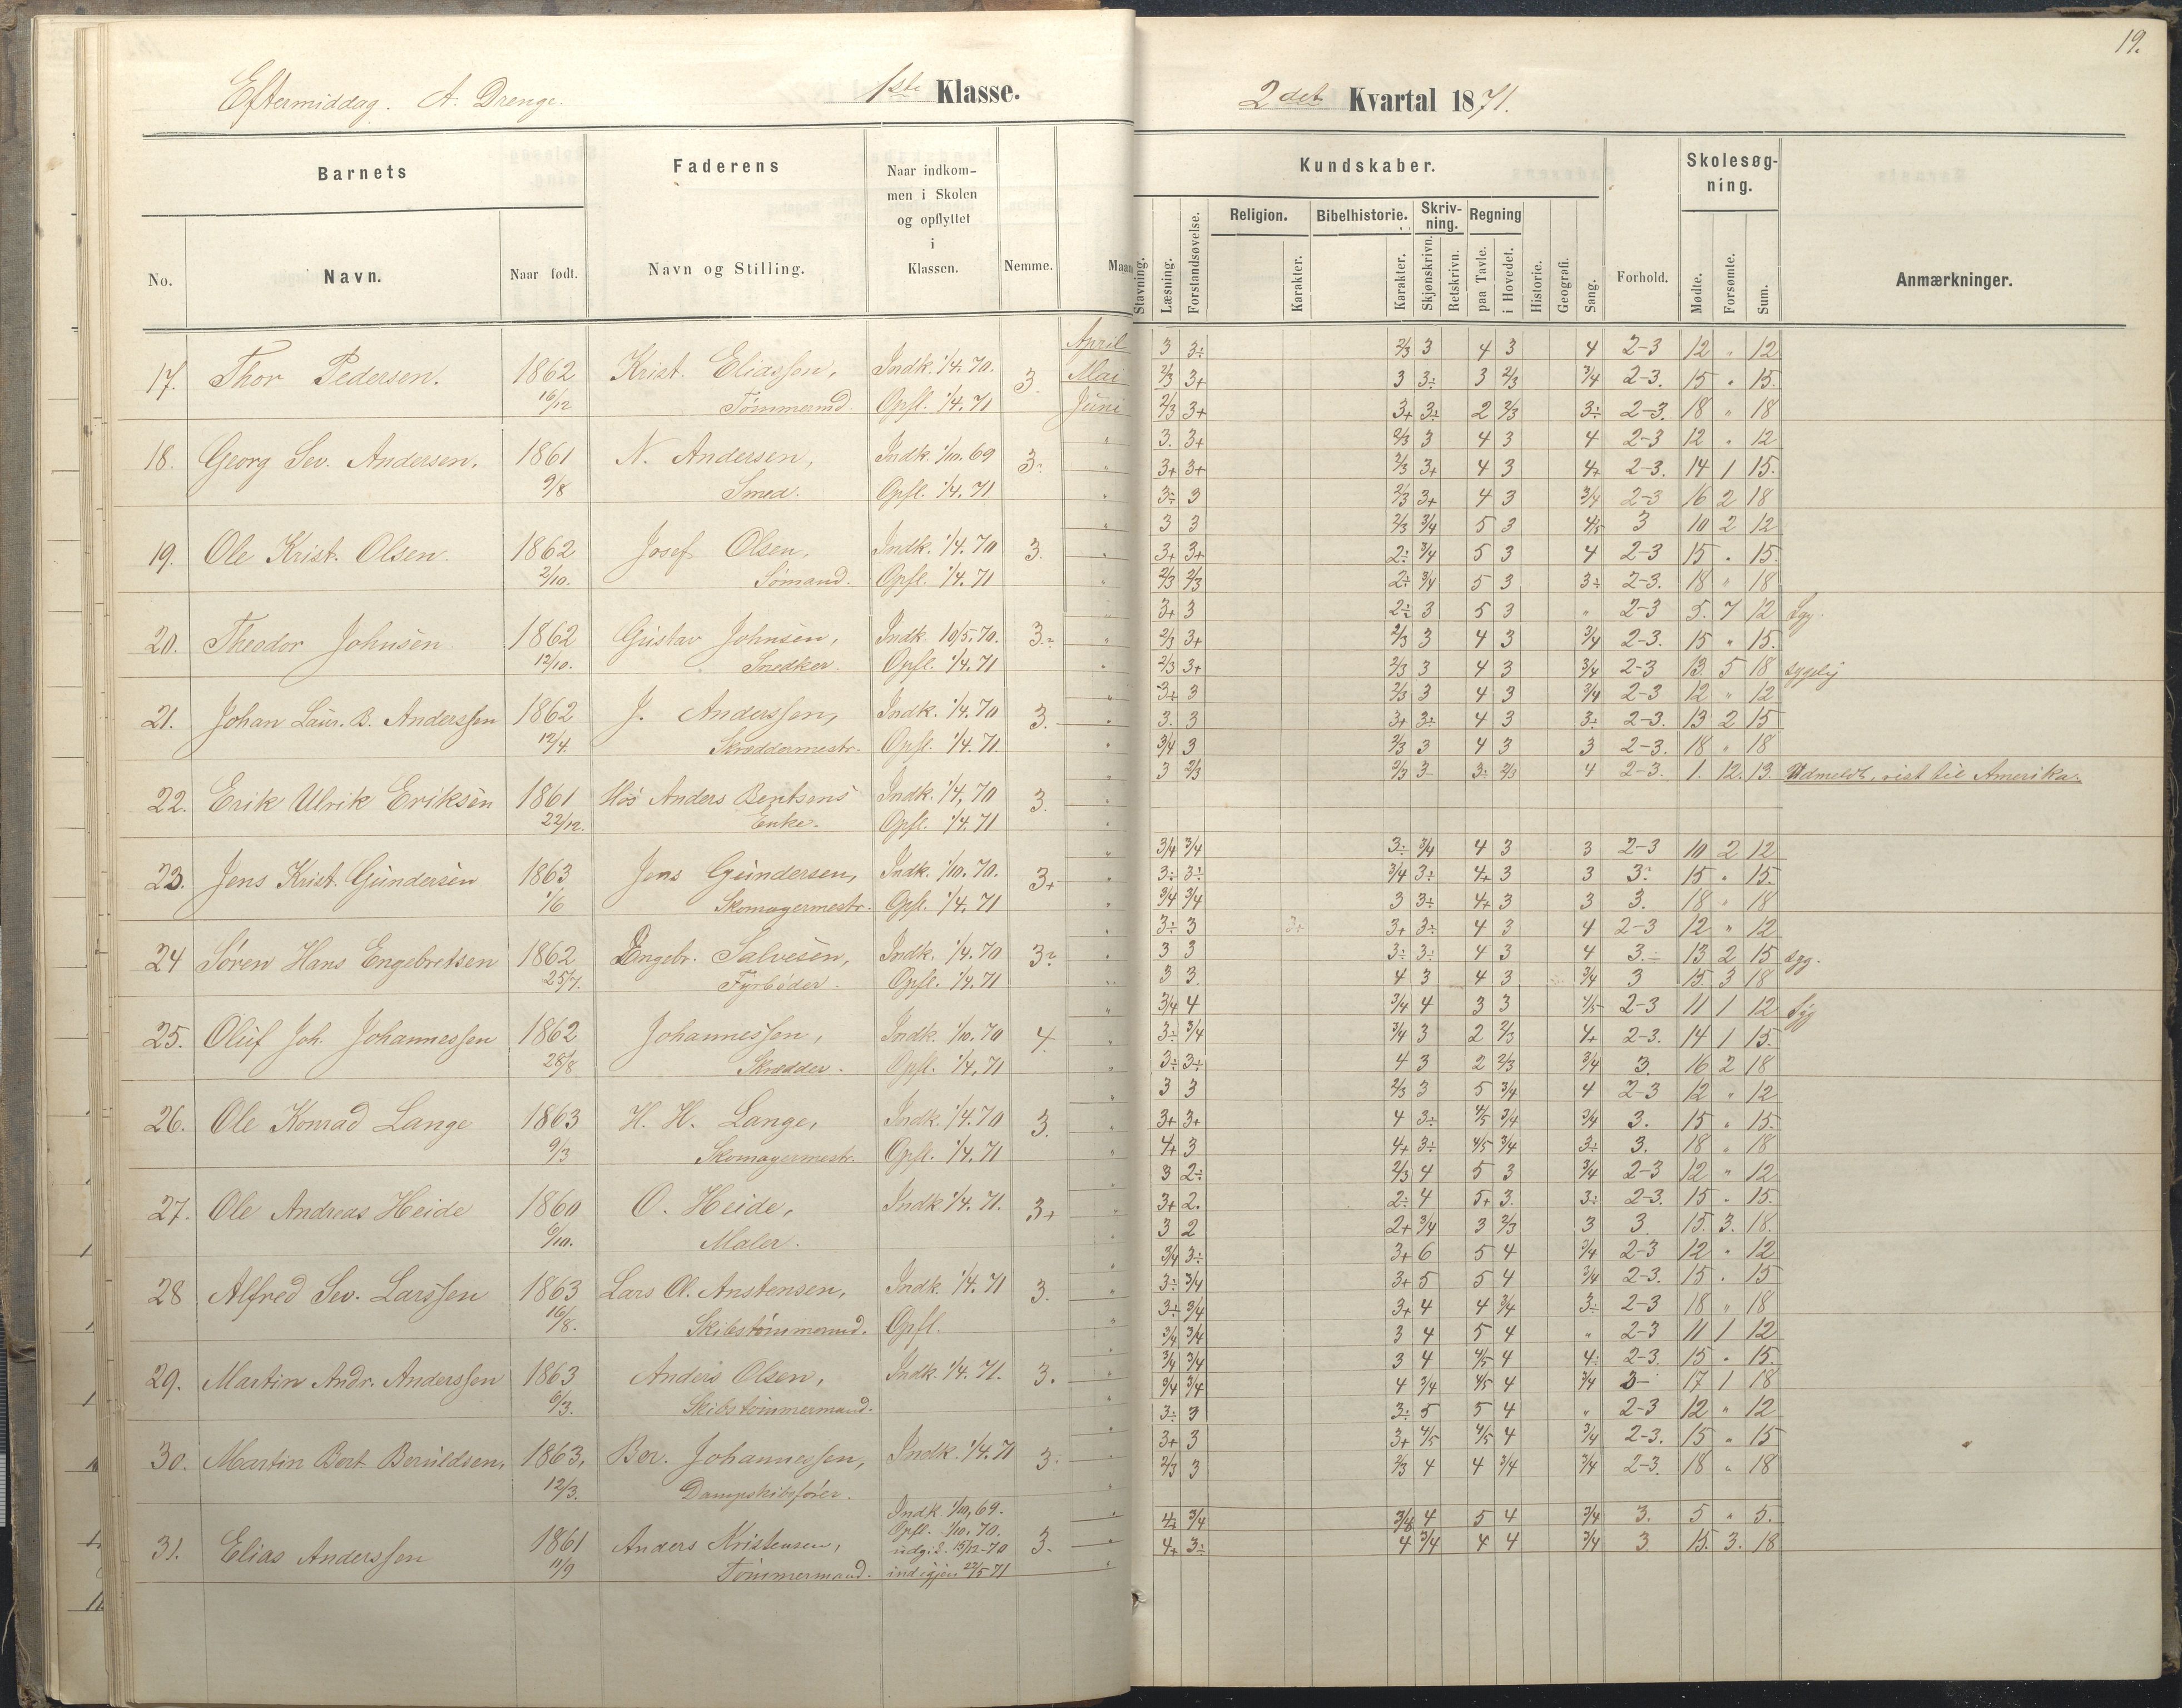 19.
Eftermiddag. A. Drenge. 1ste Klasse. 2det Kvartal 1871.
Barnets Faderens Naar indkom-men i Skolen og opflyttet i Klassen. Nemme. Maan Kundskaber. Forhold. Skolesøg-ning. Anmærkninger.
No. Navn. Naar født. Navn og Stilling. Stavning. Læsning. Forstandsøvelse. Religion. Karakter. Bibelhistorie. Karakter. Skriv-ning. Skjønskrivn. Retskrivn. Regning paa Tavle. i Hovedet. Historie. Geografi. Sang. Mødte. Forsømte. Sum.
April 3 3÷ 2/3 3 4 3 4 2-3 12 " 12
17. Thor Pedersen. 1862 Krist. Eliassen, Indk. 1/4. 70. 3. Mai 2/3 3+ 3 3÷ 3 2/3 3/4 2-3. 15 " 15.
16/12 Tømmermd. Opfl. 1/4. 71 Juni 2/3 3+ 3+ 3÷ 2 2/3 3÷ 2-3. 18 " 18
" 3. 3+ 2/3 3 4 3 4 2-3 12 " 12
18. Georg Sev. Andersen. 1861 N. Andersen, Indk. 1/10. 69 3÷ " 3+ 3+ 2/3 3+ 4 3 4+ 2-3. 14 1 15.
9/8 Smed. Opfl. 1/4. 71 " 3÷ 3 2/3 3+ 4 3 3/4 2-3 16 2 18
" 3 3 2/3 3/4 5 3 4/5 3 10 2 12
19. Ole Krist. Olsen. 1862 Josef Olsen, Indk. 1/4. 70 3. " 3+ 3+ 2÷ 3/4 5 3 4 2-3 15 " 15.
2/10. Sømand. Opfl. 1/4. 71 " 2/3 2/3 2÷ 3/4 5 3 3÷ 2-3. 18 " 18
" 3+ 3 2÷ 3 5 3 " 2-3 5. 7 12 Syg.
20. Theodor Johnsen 1862 Gustav Johnsen, Indk. 10/5-70. 3÷ " 2/3 3+ 2/3 3 4 3 3/4 2-3. 15 " 15.
12/10. Snedker. Opfl. 1/4. 71 " 2/3 3+ 2/3 3 4 3 3/4 2-3 13. 5 18 sygelig
" 3÷ 3 2/3 3 4 3 3/4 2-3 12 " 12
21. Johan Laur. B. Anderssen 1862 J. Anderssen, Indk. 1/4. 70 3. " 3. 3 3+ 3÷ 4 3 3÷ 2-3. 13 2 15
12/4. Skræddermestr. Opfl. 1/4. 71. " 3/4 3 2/3 3 4 3 3 2-3. 18 " 18
" 3 2/3 2/3 3 3÷ 2/3 4 2-3. 1. 12. 13. Udmeldt, reist til Amerika.
22. Erik Ulrik Eriksen 1861 Hos Anders Bentsens Indk. 1/4, 70 3. "
22/12. Enke. Opfl. 1/4. 71 "
" 3/4 3/4 3÷ 3/4 4 3 3 2-3 10 2 12
23. Jens Krist. Gundersen 1863 Jens Gundersen, Indk. 1/10. 70. 3+ " 3÷ 3÷ 3/4 3÷ 4+ 3 3 3÷ 15 " 15.
1/6 Skomagermestr. Opfl. 1/4. 71 " 3/4 3/4 3 3÷ 4+ 3 3 3. 18 " 18
" 3÷ 3 3+ 3+ 3÷ 4 3 4 2-3 12 " 12
24 Søren Hans Engebretsen 1862 Engebr. Salvesen, Indk. 1/4. 70 3÷ " 3 3 3÷ 3÷ 4 3 4 3.÷ 13 2 15 syg.
25/7. Fyrbøder. Opfl. 1/4. 71 " 3 3. 4 3 4 3 3/4 3 15. 3 18
" 3/4 4 3/4 4 3 3 4/5 2-3 11 1 12 Syg
25. Oluf Joh. Johannessen 1862 Johannessen, Indk. 1/10. 70 4. " 3÷ 3/4 3/4 3 2 2/3 4+ 2-3. 14 1 15.
28/8 Skrædder. Opfl. 1/4, 71 " 3÷ 3÷ 4 3 2 2/3 3/4 3. 16 2 18
" 3 3 2/3 3 5 3/4 4 2-3 12 " 12
26. Ole Konrad Lange 1863 H. H. Lange, Indk. 1/4. 70 3. " 3+ 3+ 4 3÷ 4/5 3/4 3/4 3. 15 " 15.
9/3 Skomagermestr. Opfl. 1/4. 71 " 4+ 3 4+ 3÷ 4/5 3/4 3÷ 3. 18 " 18
" 3 2÷ 2/3 4 5 3 3/4 2-3 12 " 12
27. Ole Andreas Heide 1860 O. Heide, Indk. 1/4. 71. 3+ " 3+ 2. 2÷ 4 5+ 3. 3÷ 2-3. 15 " 15.
6/10. Maler. " 3 2 2+ 3/4 3 2/3 3 3 15. 3. 18.
" 3/4 3÷ 3+ 6 5 4 3/4 2-3 12 " 12
28 Alfred Sev. Larssen 1863 Lars Ol. Anstensen, Indk. 1/4. 71 3. " 3÷ 3/4 3+ 5 5 4 3/4 2-3. 15 . 15
16/8. Skibstømmermd. Opfl. " 3÷ 3/4 3+ 4 4 3/4 3÷ 2-3 18 " 18
" 3/4 3/4 3 4 5 4 " 2-3 11 1 12
29. Martin Andr. Anderssen 1863 Anders Olsen, Indk. 1/4. 71. 3. " 3/4 3/4 3 4 4/5 4 4÷ 2-3. 15 " 15.
6/3. Skibstømmermand. " 3/4 3/4 4 3/4 4/5 4 3/4 3- 17 1 18
" 3÷ 3 3÷ 5 5 4 " 2-3 12 " 12
30. Martin Bert. Beruldsen, 1863, Ber. Johannessen, Indk. 1/4. 71 3. " 3+ 3 3+ 4/5 4/5 4 3/4 2-3. 15 " 15
12/3. Dampskibsfører. " 2/3 3 2/3 4 4 3/4 3/4 2-3. 18 " 18
Indk. 1/10, 69.
Opfl. 1/10. 70. " 4+ 3/4 3/4 4 5 4 3/4 3. 5 " 5.
31. Elias Anderssen 1861 Anders Kristensen, udg. S. 15/12-70 3. " 4+ 3÷ 4 3/4 4 4 3/4 3 15. 3. 18
11/9 Tømmermand. ind igjen 22/5 71 "